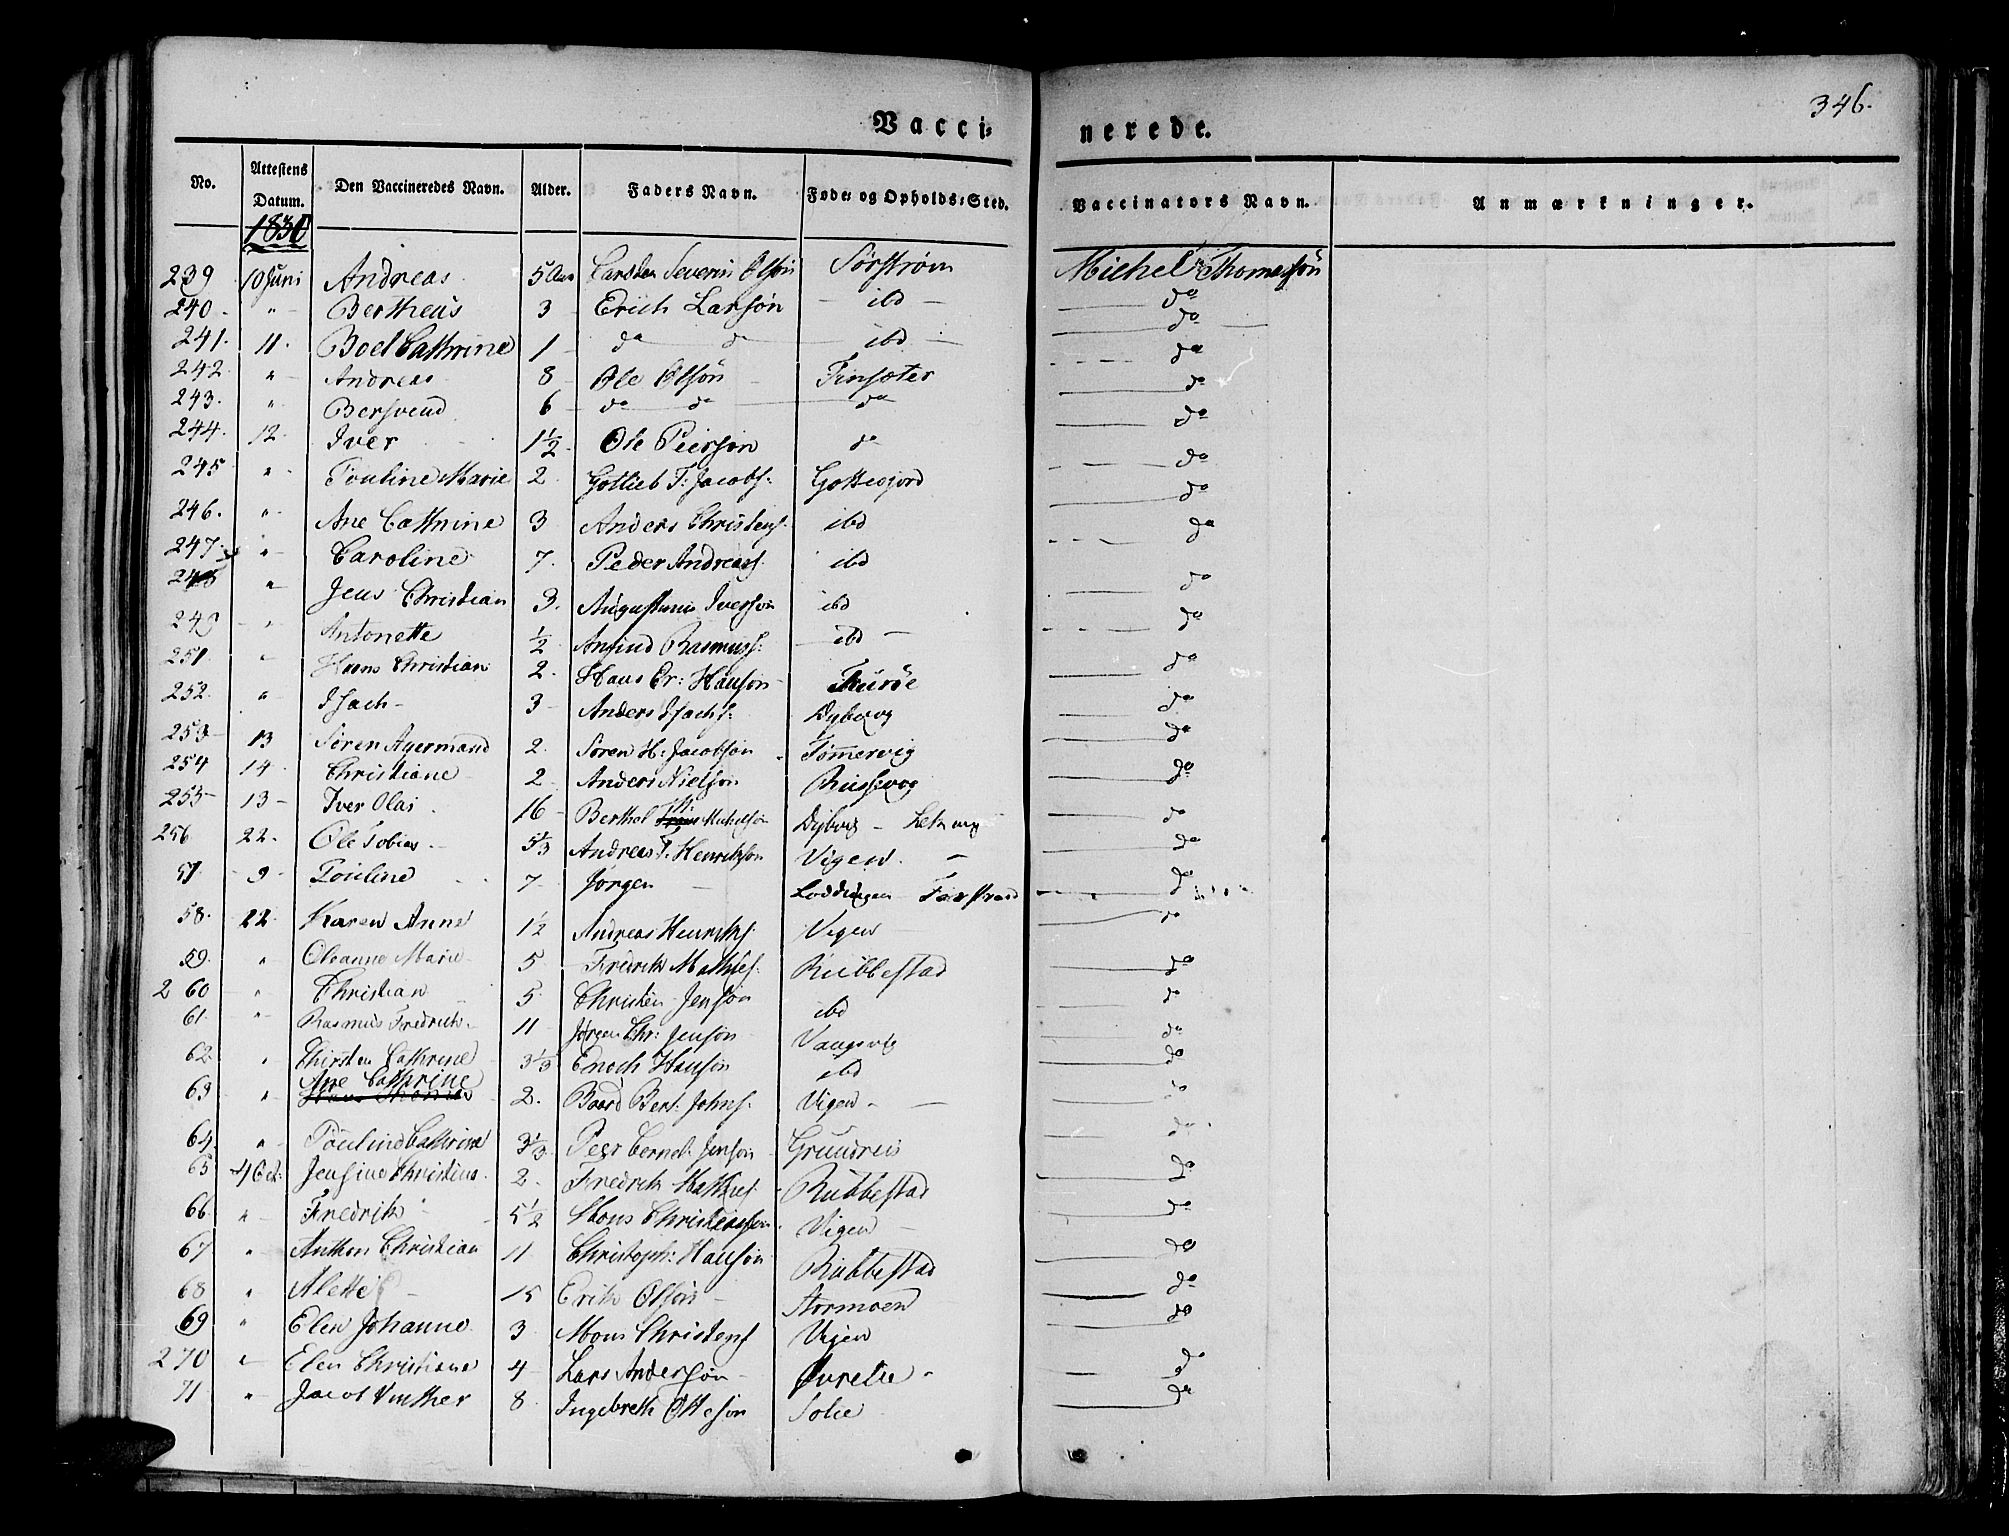 346.
Vacci= nerede.
No. Attestens Datum. Den Vaccineredes Navn. Alder. Faders Navn. Føde= og Opholds=Sted. Vaccinators Navn. Anmærkninger.
1830
239 10 Juni Andreas 5 Aar Carsten Severin Olsøn Sørstrøm Michel Thomassøn
240. " Bertheus 3 Erich Larsøn ibd do
241. 11. Boel Cathrine 1 do do ibd do
242 " Andreas 8 Ole Olsøn Finsæter do
243. " Bersvend 6 do do do do
244. 12. Iver 1½ Ole Peersøn do do
245 " Pouline Marie 2 Gotlieb T: Jacobs: Gottesjord do
246. " Ane Cathrine 3 Anders Christens. ibd do
247. " Caroline 7. Peder Andreas. ibd do
248 " Jens Christian 3. Augustinus Iversøn ibd do
249 " Antonette ½ Amund Rasmuss: ibd do
251 " Hans Christian 2. Hans Er: Hansøn do
252. " Isach 3 Anders Isachs: Dybevog do
253 13 Søren Agermand 2. Søren H: Jacobsøn Tømmervig do
254 14 Christiane 2 Anders Nielsøn Russevog do
255 13 Iver Olai 16 Berthel Michelsøn Dybvig do
256 22. Ole Tobias 5⅓ Andreas T. Henriksøn Vigen. do
57. 9 Pouline 7 Jørgen Loddingen do
58. 22. Karen Anne 1½ Andreas Henriks. Vigen do
59. " Oleanne Marie 5 Fredrik Mathies. Rubbestad do
2 60 " Christian 5. Christen Jensøn ibd do
61. " Rasmus Fredrich 11 Jørgen Chr: Jensøn Vangsvig do
62 " Chirsten Cathrine 3⅓ Enoch Hansøn ibd do
63 " Ane Cathrine 2. Baard Bert. Johns. Vigen do
64. " Pouline Cathrine 3⅓ Peer Cornel. Jensøn Grundreis do
65 4 Oct: Jensine Christine 2. Fredrik Mathies. Rubbestad do
66 " Fredrik 5½ Mons Christensøn Vigen do
67 " Anthon Christian 11 Christoph: Hansøn Rubbestad do
68 " Alette 15 Erik Olsøn Stormoen do
69 " Elen Johanne 3 Mons Christens Vigen do
270 " Elen Christiane 4 Lars Andersøn do
71 " Jacob Vinther 8 Ingebreth Ottesøn do